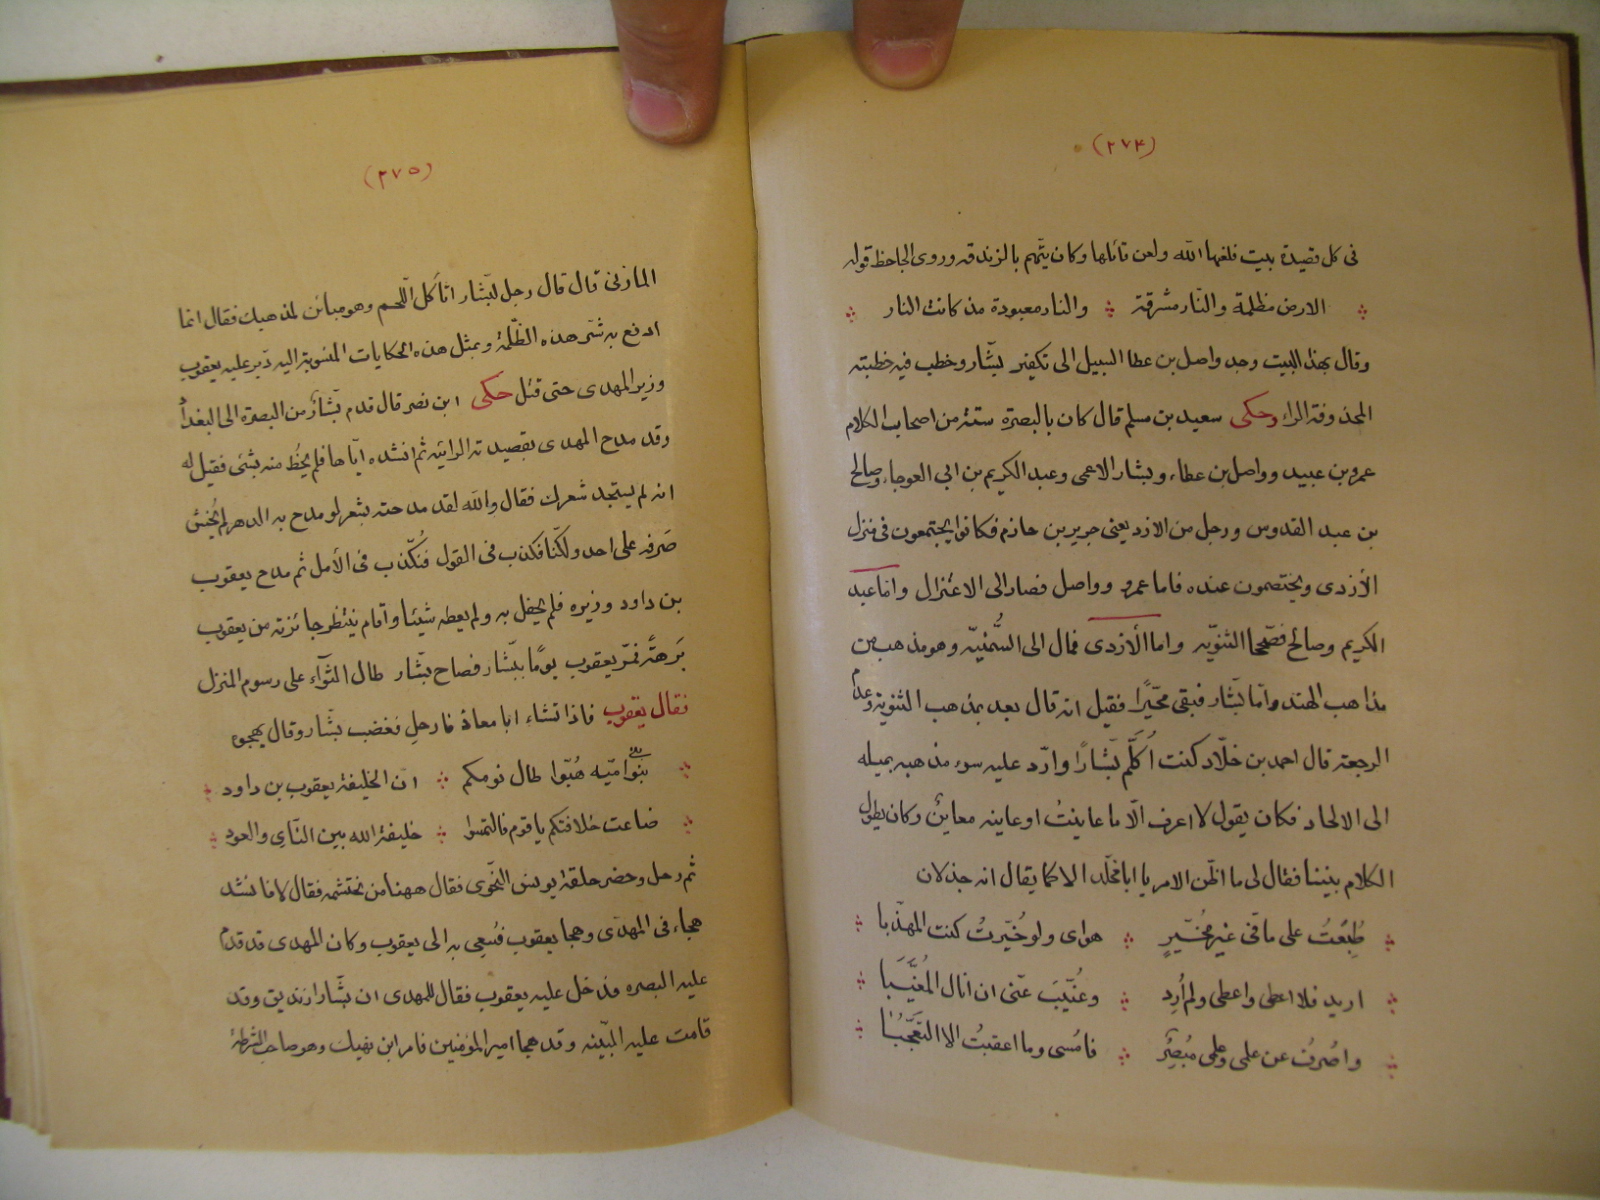 (٢٧٤)
فى كل قصيدة بيت فلعنها الله ولعن قائلها وكان يتهم بالزندقه وروى الجاحظ قوله
الارض مظلمة والنار مشرقة والنار معبودة مذ كانت النار
وقال بهذا البيت وجد واصل بن عطا السبيل الى تكفير بشار وخطب فيه خطبته
المحذوفة الراء وحكى سعيد بن مسلم قال كان بالبصرة ستة من اصحاب الكلام
عمرو بن عبيد وواصل بن عطاء وبشار الاعمى وعبد الكريم بن ابي العوجاء وصالح
بن عبد القدوس ورجل من الازد يعنى جرير بن حازم فكانوا يجتمعون فى منزل
الأزدى ويختصمون عنده فاما عمرو وواصل فصار الى الاعتزال واما عبد
الكريم وصالح فصححا الثنويه واما الأزدى فمال الى السُّمنيّه وهو مذهب من
مذاهب الهند واما بشار فبقى محيّرًا فقيل انه قال بعد بمذهب الثنوية وعدم
الرجعة قال احمد بن خلّاد كنت اُكَلّم بَشارًا واردّ عليه سوء مذهبه بميله
الى الالحاد فكان يقول لا اعرف الّا ما عاينتُ او عاينه معاين وكان يطول
الكلام بيننا فقال لى ما اظن الامر يا ابا مخلد الا كما يقال انه خذلان
طُبِعْتُ على ما فىّ غير مُخَيّرٍ هواى ولو خُيّرتُ كنت المهذّبا
اريد فلا اعطى واعطى ولم اُرِد وغُيّبَ عنّى ان انال المُغَيَّبَا
واصُرفُ عن علمى وعلمى مُبصِرٌ فامُسى وما اعقبتُ الا التعَجّبُا
(٢٧٥)
المازنى قال قال رجل لبشار اتأكل اللّحم وهو مبائن لمذهبك فقال انما
ادفع به شرّ هذه الظّلمة وبمثل هذه الحكايات المنسوبة اليه دبّر عليه يعقوب
وزير المهدى حتى قتل حكى ابن نصر قال قدم بشار من البصرة الى البغداد
وقد مدح المهدى بقصيدته الرائية ثم انشده اياها فلم يحُظ منه بشئى فقيل له
انه لم يستجد شعرك فقال والله لقد مدحته بشعر لو مدح به الدهر لم يُخش
صَرفه على احد ولكنّا نكذب فى القول فنُكّذب فى الأمل ثم مدح يعقوب
بن داود وزيره فلم يحفل به ولم يعطه شيئا واقام ينتظر جائزته من يعقوب
بَرهةً فمرّ يعقوب يومًا ببشّار فصاح بشّار طال الثّوآء على رسوم المنزل
فقال يعقوب فاذا تشاء ابا معاذ فارحلِ فغضب بشّار وقال يهجوه
بنوا اميّه هُبّوا طال نومكم انّ الخليفة يعقوب بن داود
ضاعت خلافتكم يا قوم فالتمسوا خليفة الله بين النّاى والعود
ثم رحل وحضر حلقة يونس النّحوى فقال ههنا من نحتشمه فقال لا فانشد
هجاء فى المهدّى وهجا يعقوب فسُعِى به الى يعقوب وكان المهدى قد قدم
عليه البصره فدخل عليه يعقوب فقال للمهدى ان بشّارا زنديق وقد
قامت عليه البيّنه وقد هجا امير المؤمنين فامر ابن نهيك وهو صاحب الشرطة